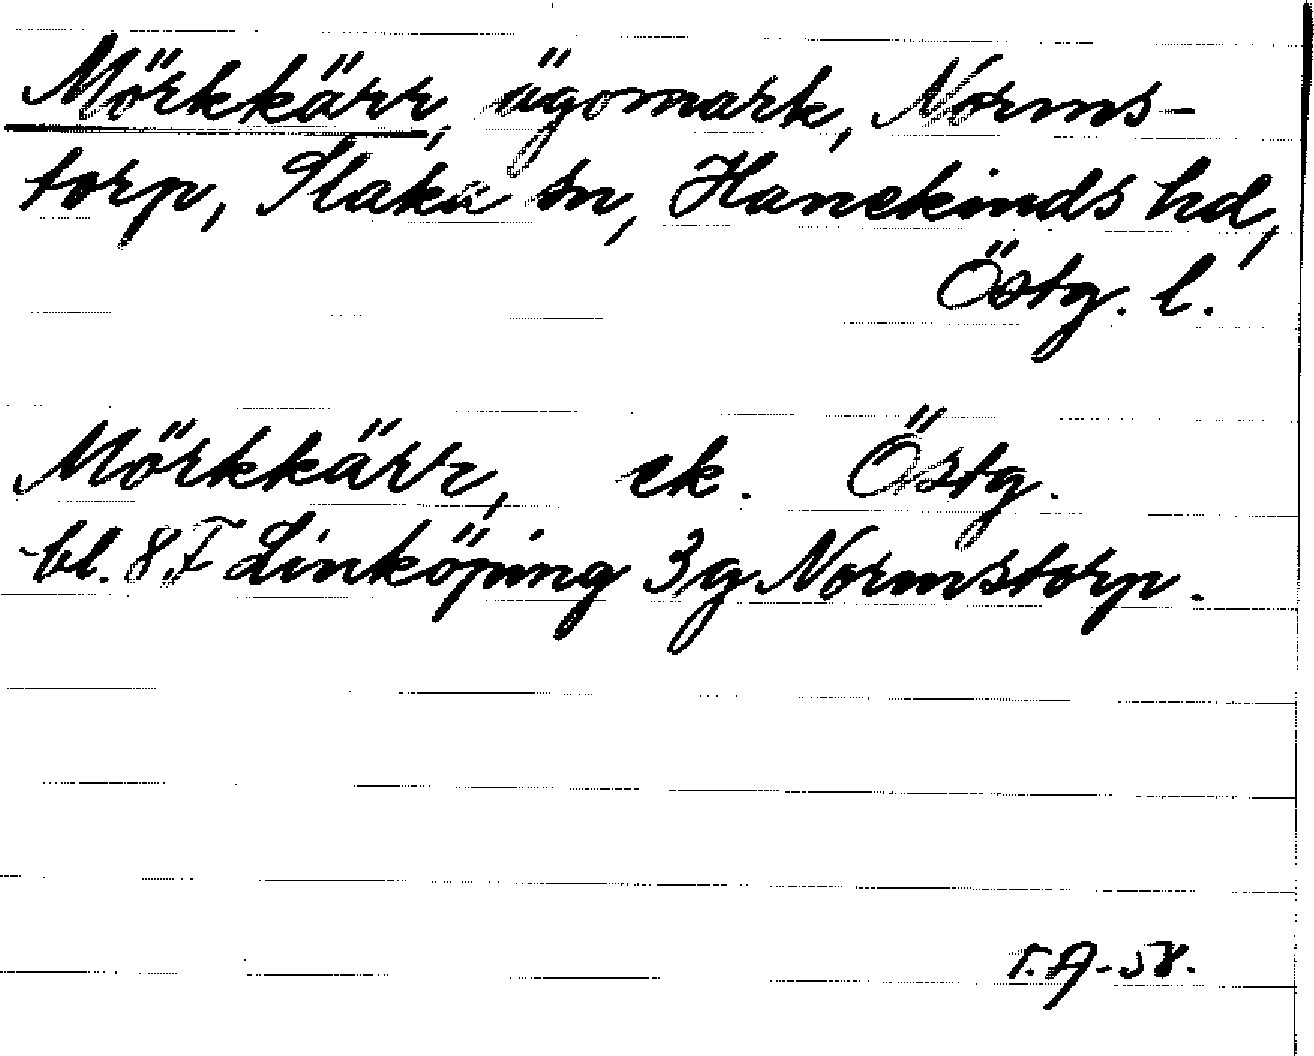 Mörkkärr, ägomark, Norms-
torp, Slaka sn, Hanekinds hd,
Östg. l.
Mörkkärr, ek. Östg.
bl. 8 F Linköping 3g Normstorp.
T.A-58.